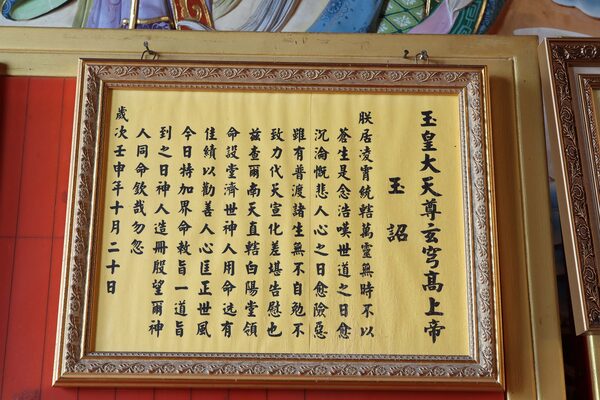 玉皇大天尊玄穹高上帝
玉詔
朕居凌霄統轄萬靈無時不以
蒼生是念浩嘆世道之日愈
沉淪慨悲人心之日愈險惡
雖有普渡諸生無不自勉不
致力代天宣化差堪告慰也
茲查爾南天直轄白陽堂領
命設堂濟世神人用命迭有
佳績以勸善人心匡正世風
今日特加界命敕旨一道旨
到之日神人造冊殷望爾神
人同命欽哉勿忽
歲次壬申年十月二十日